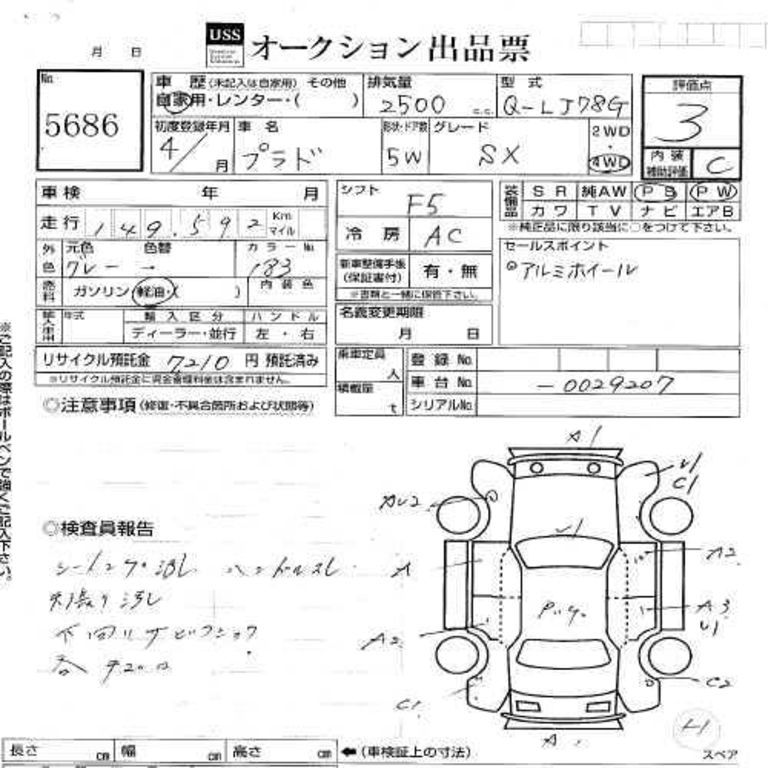 USS オークション出品票
月 日
No. 5686
車歴 (未記入は自家用) その他
自家用・レンター・( )
排気量 2500 c.c.
型式 Q-LJ78G
評価点 3
内装補助評価 C
初度登録年月 4/ 月
車名 プラド
形状・ドア数 5W
グレード SX
2WD・4WD
車検 年 月
走行 149,592 Km マイル
外色 元色 色替 カラーNo.
グレー → 183
燃料 ガソリン・軽油・( ) 内装色
輸入車用 年式 輸入区分 ハンドル
ディーラー・並行 左・右
シフト F5
冷房 AC
新車整備手帳(保証書付) 有・無
※書類と一緒に保管下さい。
名義変更期限
月 日
装備品 SR 純AW PS PW
カワ TV ナビ エアB
※純正品に限り該当に○をつけて下さい。
セールスポイント
◎アルミホイール
リサイクル預託金 7210 円 預託済み
※リサイクル預託金に資金管理料金は含まれません。
乗車定員 人
積載量 t
登録No.
車台No. -0029207
シリアルNo.
◎注意事項(修復・不具合箇所および状態等)
※ご記入の際はボールペンで強くご記入下さい。
◎検査員報告
ハンドルスレ
A1
U1
C1
AU2
U1
A
A2
P.g.
A3
U1
A2
C1
C2
A
スペア
長さ cm 幅 cm 高さ cm ←(車検証上の寸法)